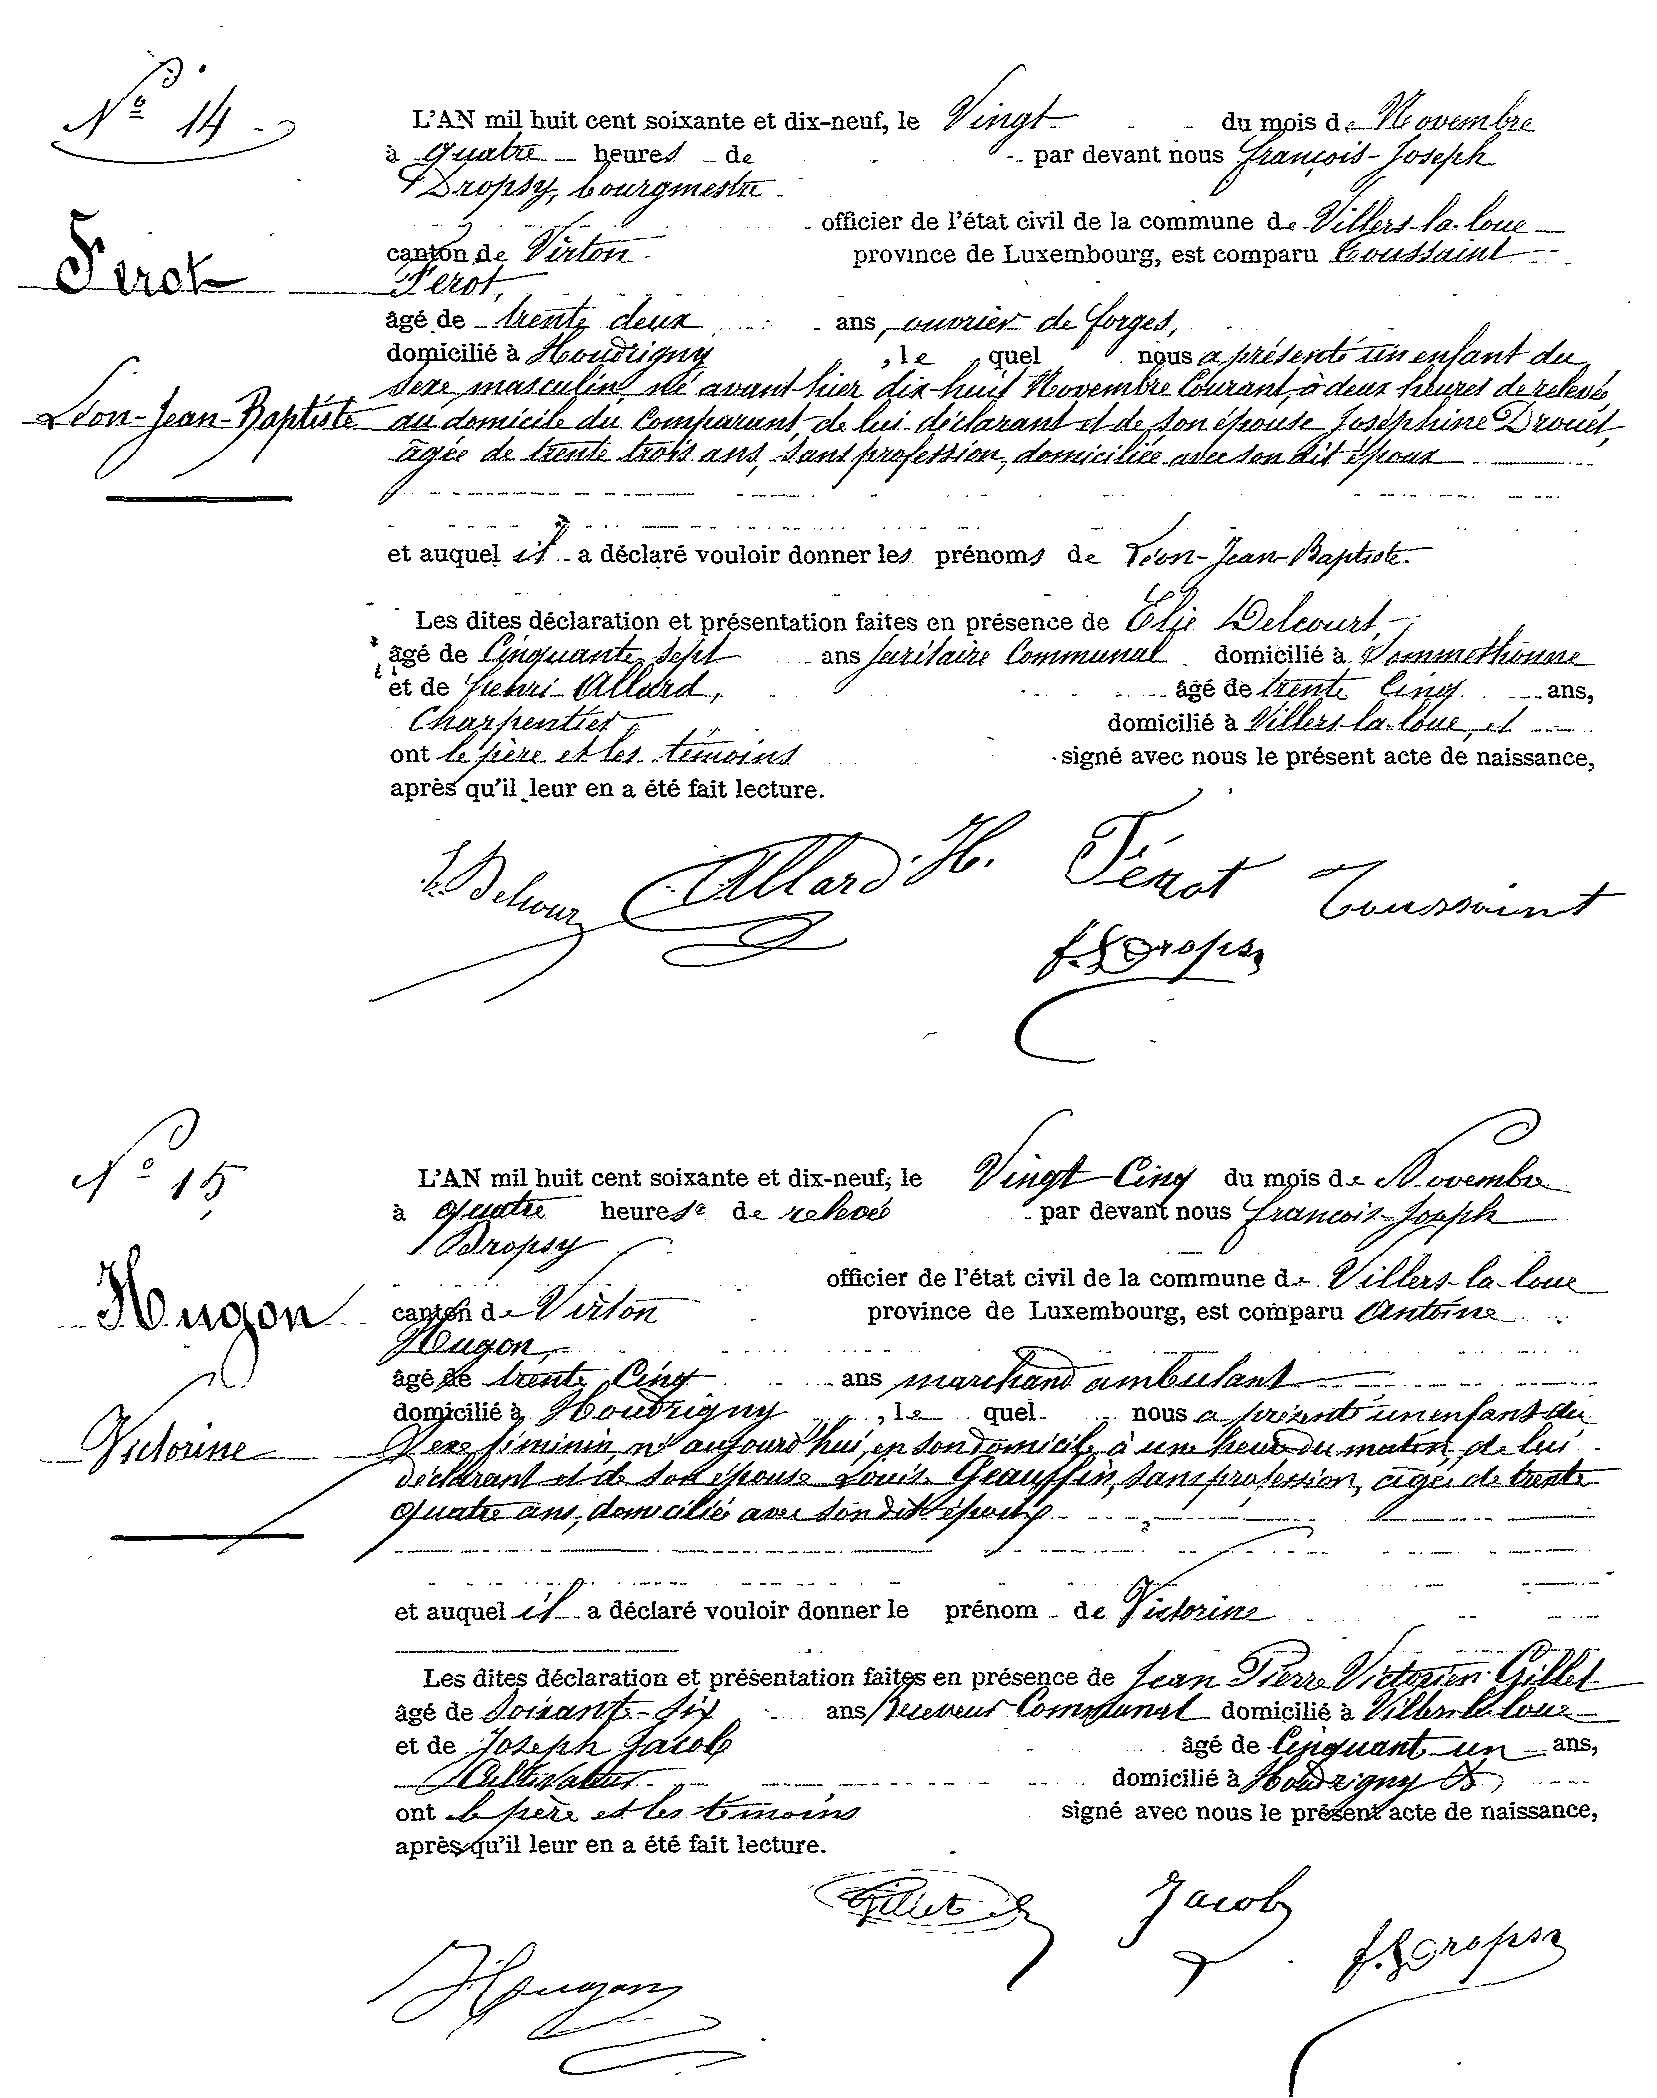 N° 14
L'AN mil huit cent soixante et dix-neuf, le Vingt du mois de Novembre
à quatre heures de par devant nous françois-Joseph
Dropsy, bourgmestre
officier de l'état civil de la commune de Villers-la-loue
Ferot
canton de Virton province de Luxembourg, est comparu Toussaint
Ferot,
âgé de trente deux ans, ouvrier de forges,
domicilié à Houdrigny , le quel nous a présenté un enfant du
Sexe masculin, né avant hier dix-huit Novembre Courant, à deux heures de relevée,
Léon-Jean-Baptiste
au domicile du Comparant, de lui déclarant et de son épouse Joséphine Drouet,
âgée de trente trois ans, sans profession, domiciliée avec son dit époux
et auquel il a déclaré vouloir donner les prénoms de Léon-Jean-Baptiste.
Les dites déclaration et présentation faites en présence de Élie Delcourt,
âgé de Cinquante Sept ans Communal domicilié à Sommethonne
et de henri Allard, âgé de trente Cinq ans,
Charpentier domicilié à Villers-la-loue, et
ont le père et les témoins signé avec nous le présent acte de naissance,
après qu'il leur en a été fait lecture.
Allard H. Férot Toussaint
f. J Dropsy
N° 15
L'AN mil huit cent soixante et dix-neuf, le Vingt-Cinq du mois de Novembre
à quatre heures de relevée par devant nous francois-Joseph
Dropsy
officier de l'état civil de la commune de Villers-la-loue
Hugon
canton de Virton province de Luxembourg, est comparu Antoine
Hugon,
âgé de trente Cinq ans marchand ambulant
domicilié à Houdrigny , le quel nous a présenté un enfant du
Victorine
Sexe féminin, né aujourd'hui, en son domicile, à une heure du matin, de lui
déclarant et de son épouse Louise Geauffin, sans profession, âgée de trente
quatre ans, domiciliée avec son dit époux
et auquel il a déclaré vouloir donner le prénom de Victorine
Les dites déclaration et présentation faites en présence de Jean Pierre Victorien Gillet
âgé de Soixante-Six ans Receveur Communal domicilié à Villers-la-loue
et de Joseph Jacob âgé de Cinquante un ans,
Cultivateur domicilié à Houdrigny Et
ont le père et les témoins signé avec nous le présent acte de naissance,
après qu'il leur en a été fait lecture.
Gillet Jacob
f. J Dropsy
Hugon